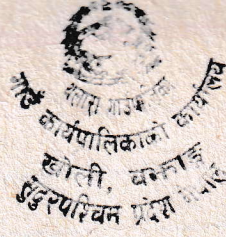 गाउँ कार्यपालिकाको कार्यालय
खोली, बझाङ
सुदूरपश्चिम प्रदेश नेपाल